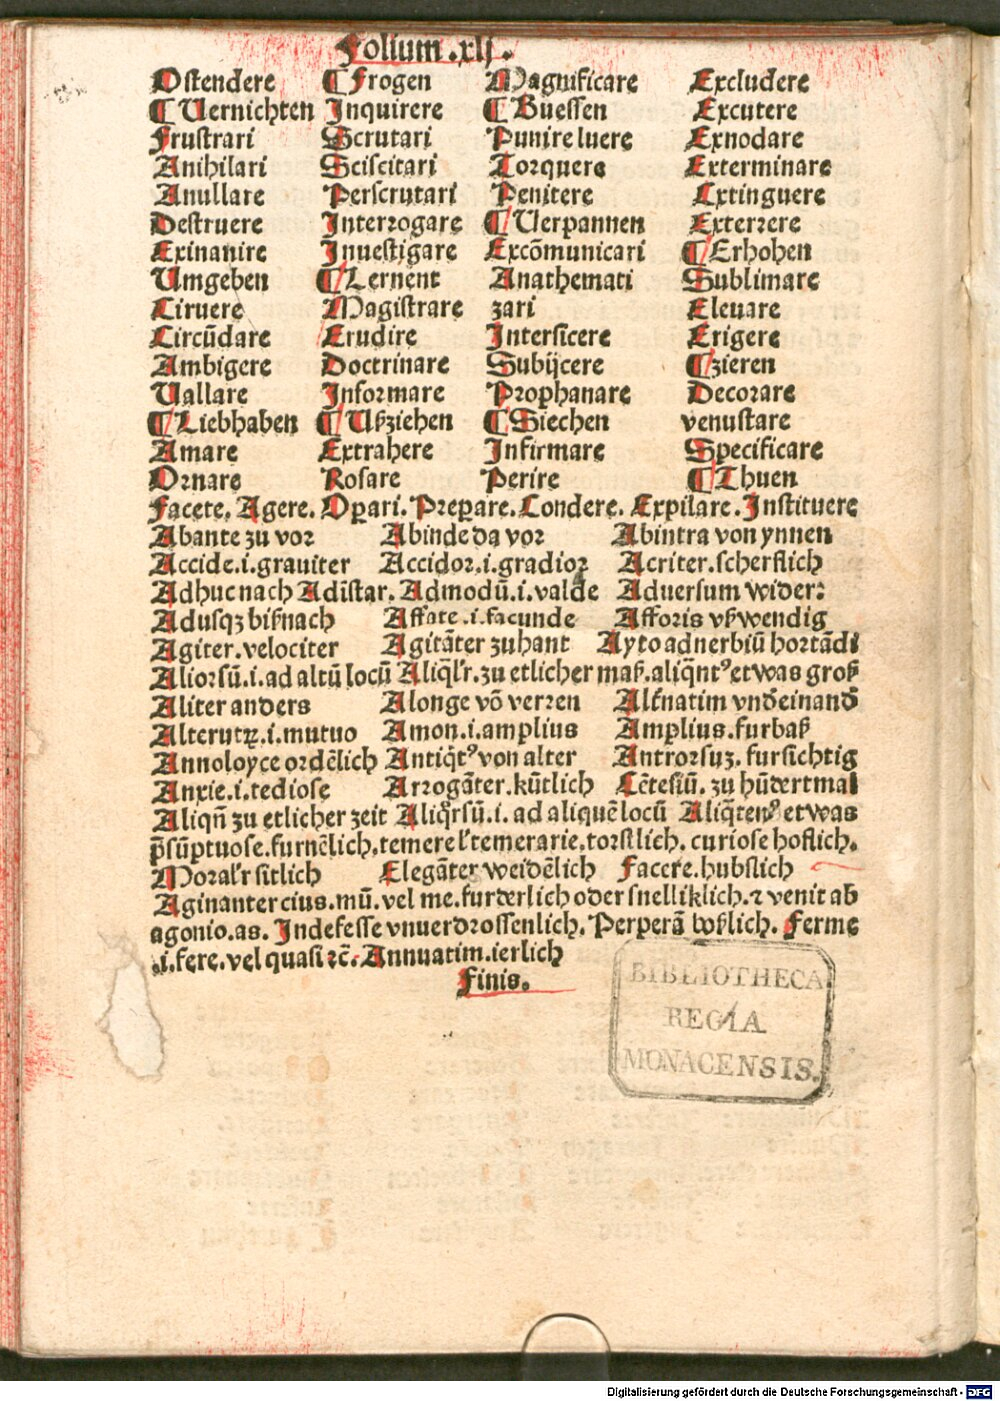 Folium .xlj.
Ostendere ¶ Frogen Magnificare Excludere
¶ Uernichten Inquirere ¶ Buessen Excutere
Frustrari Scrutari Punire luere Exnodare
Anihilari Sciscitari Torquere Exterminare
Anullare Perscrutari Penitere Extinguere
Destruere Interrogare ¶ Uerpannen Exterrere
Exinanire Inuestigare Excōmunicari ¶ Erhohen
Umgeben ¶ Lernent Anathemati Sublimare
Ciruere Magistrare zari Eleuare
Circūdare Erudire Intersicere Erigere
Ambigere Doctrinare Subijcere ¶ zieren
Uallare Informare Prophanare Decorare
¶ Liebhaben ¶ Ußziehen ¶ Siechen venustare
Amare Extrahere Infirmare Specificare
Ornare Rosare Perire ¶ Thuen
Facete. Agere. Opari. Prepare. Condere. Expilare. Instituere
Abante zu vor Abinde da vor Abintra von ynnen
Accide.i.grauiter Accidor.i.gradior Acriter.scherflich
Adhuc nach Adīstar. Admodū.i.valde Aduersum wider:
Adusqʒ bißnach Affate.i.facunde Afforis vßwendig
Agiter.velociter Agitāter zuhant Ayto adnerbiū hortādi
Aliorsū.i.ad altū locū Aliqľr.zu etlicher maß.aliqñtꝰ etwas groß
Aliter anders Alonge vō verren Alťnatim vnđeinanđ
Alterutꝝ.i.mutuo Amon.i.amplius Amplius.furbaß
Annoloyce ordēlich Antiq̄tꝰ von alter Antrorsuʒ.fursichtig
Anxie.i.tediose Arrogāter.kūtlich Cētesiū.zu hūdertmal
Aliqñ zu etlicher zeit Aliq̄rsū.i.ad aliquē locū Aliq̄tenꝰ etwas
p̄sūptuose.furnēlich.temere ľ temerarie.torstlich.curiose hoflich.
Moraľr sitlich Elegāter weidēlich Facete.hubslich
Aginanter cius.mū.vel me.furderlich oder snelliklich.⁊ venit ab
agonio.as. Indefesse vnuerdrossenlich. Perperā bößlich. Ferme
.i.fere.vel quasi ⁊c̄. Annuatim.ierlich
Finis.
BIBLIOTHECA
REGIA
MONACENSIS.
Digitalisierung gefördert durch die Deutsche Forschungsgemeinschaft - DFG